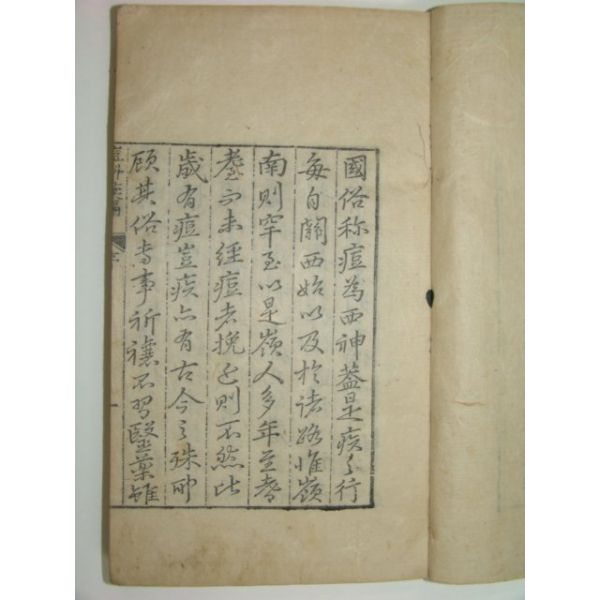 國俗称痘為西神蓋是疾之行
每自關西始以及於諸路惟嶺
南則罕至以是嶺人多年至耆
耋而未經痘者挽近則不然比
歲有痘豈疾亦有古今之殊耶
顧其俗專事祈禳不習醫藥雖
痘科